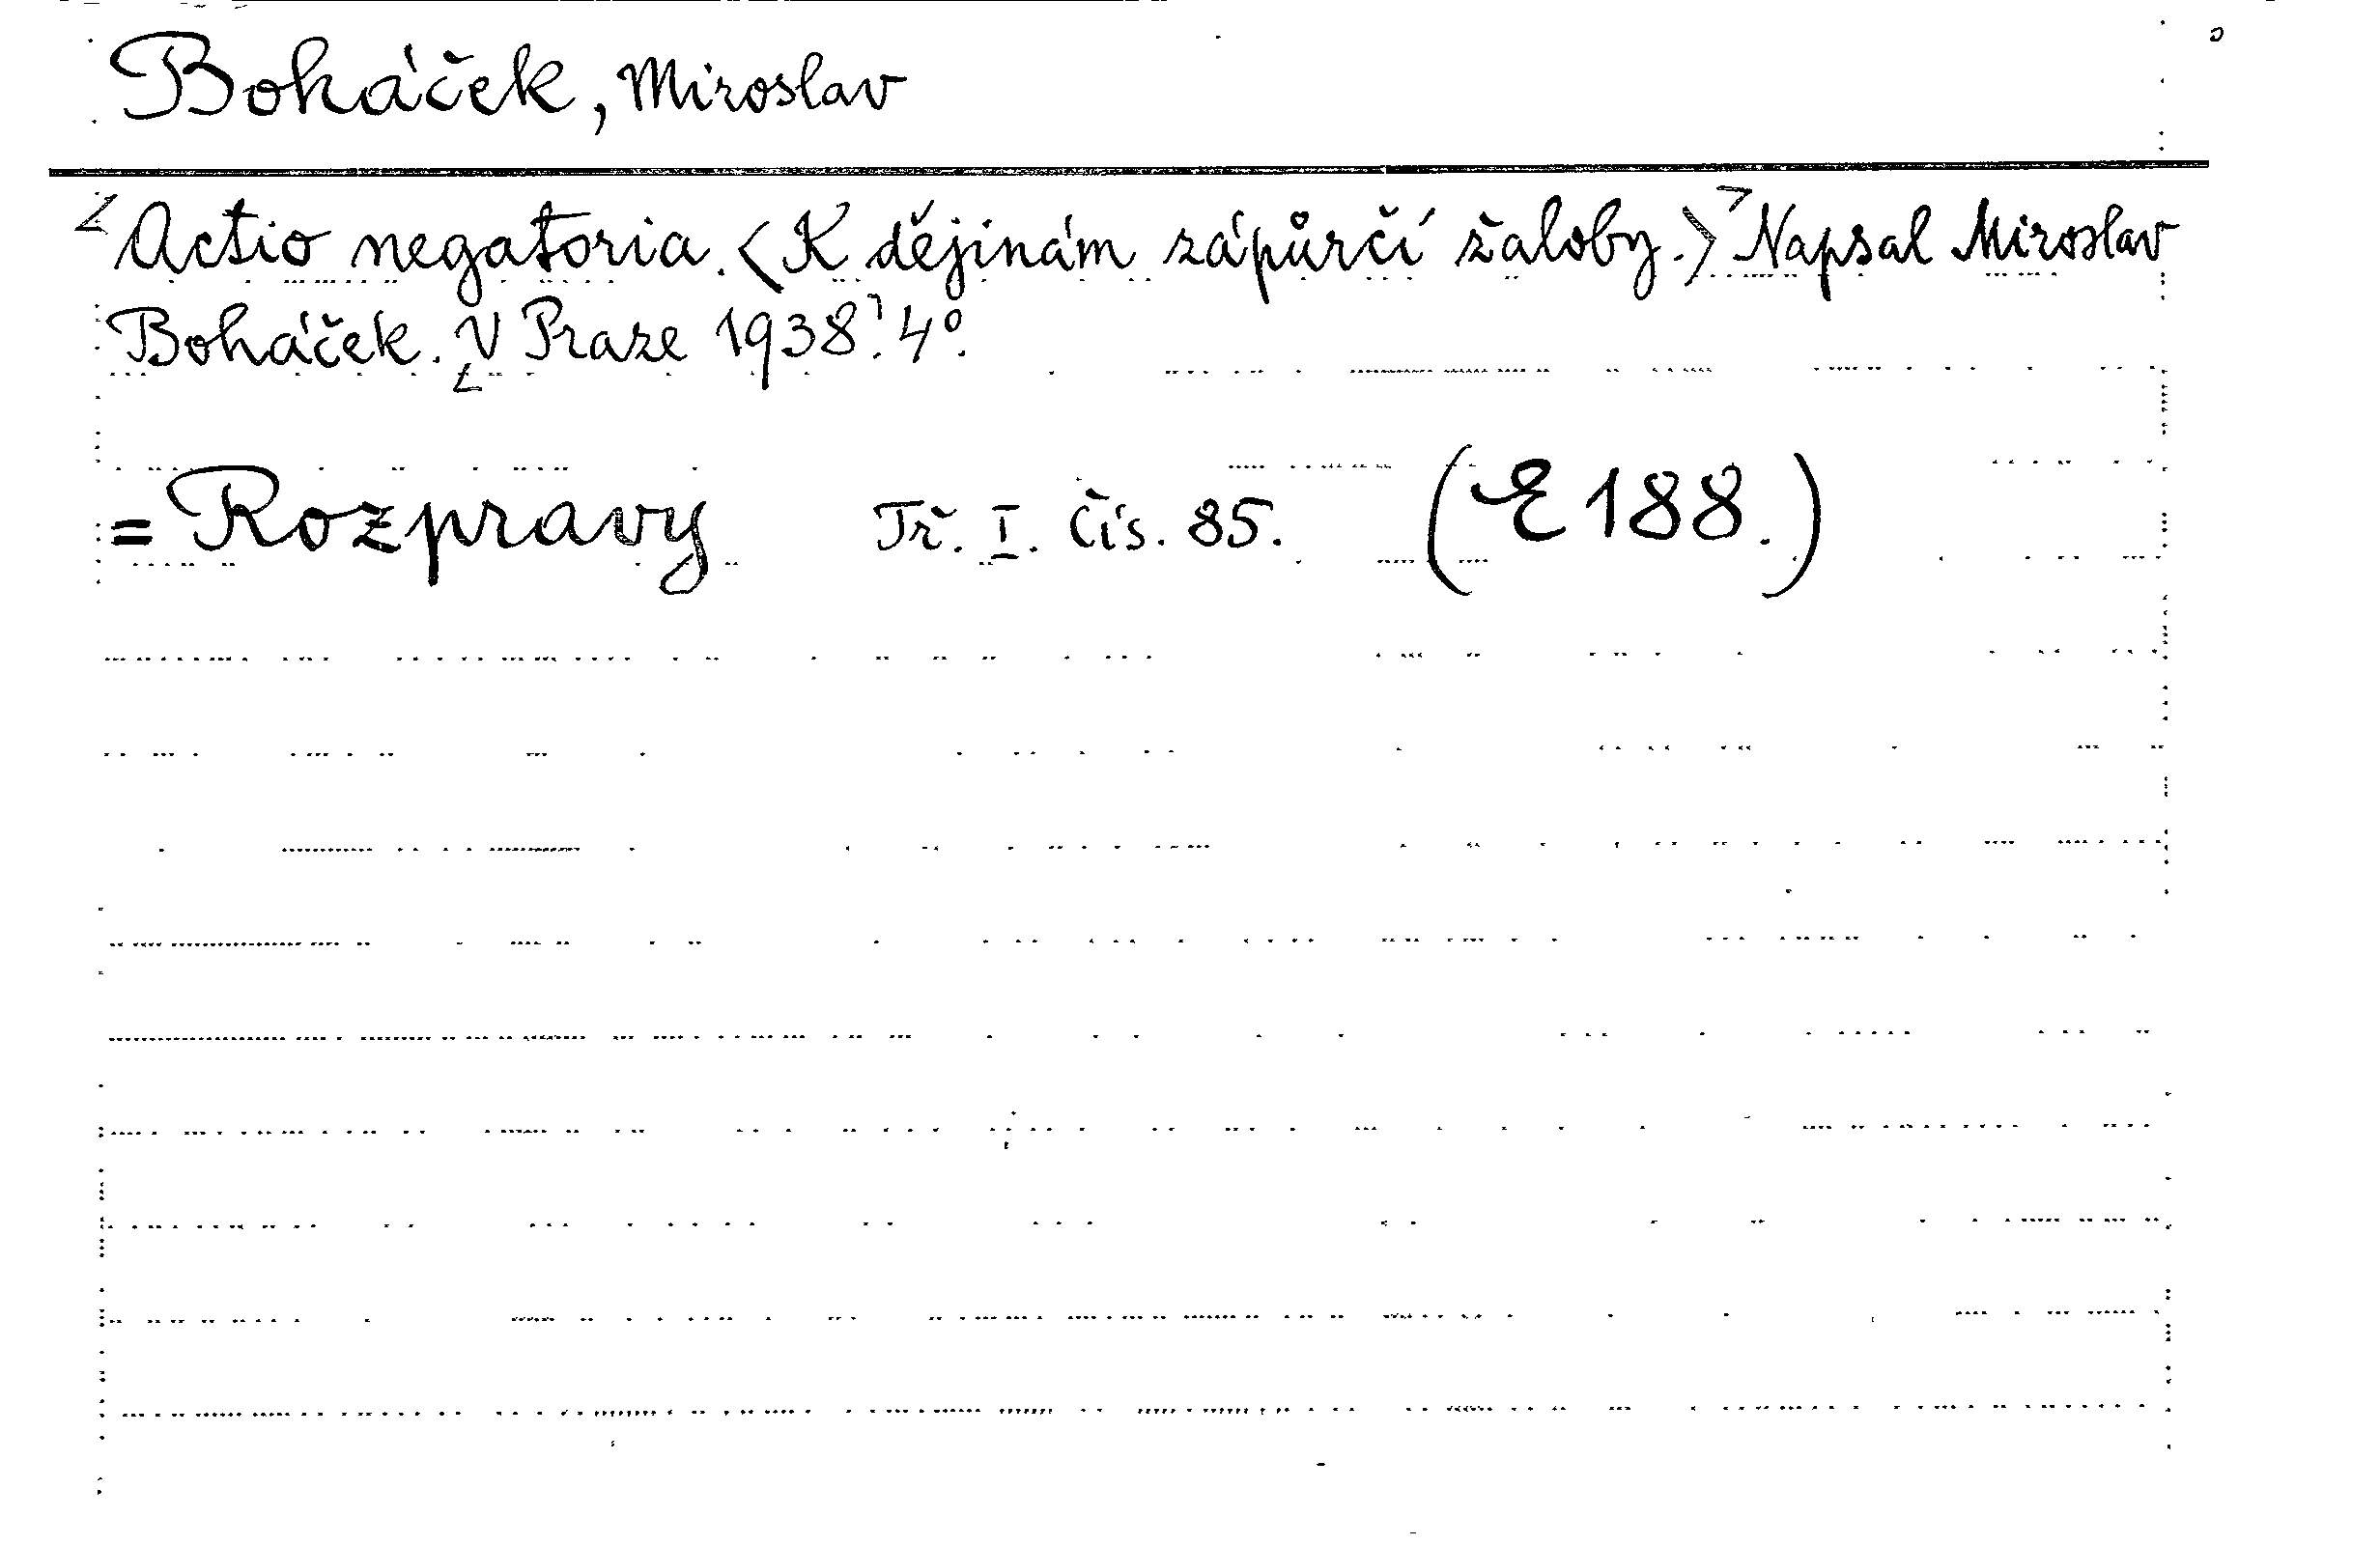 Boháček, Miroslav
Actio negatoria. <K dějinám zápůrčí žaloby.> Napsal Miroslav
Boháček. V Praze 1938. 4°.
= Rozpravy Tř. I. Čís. 85. (E 188.)